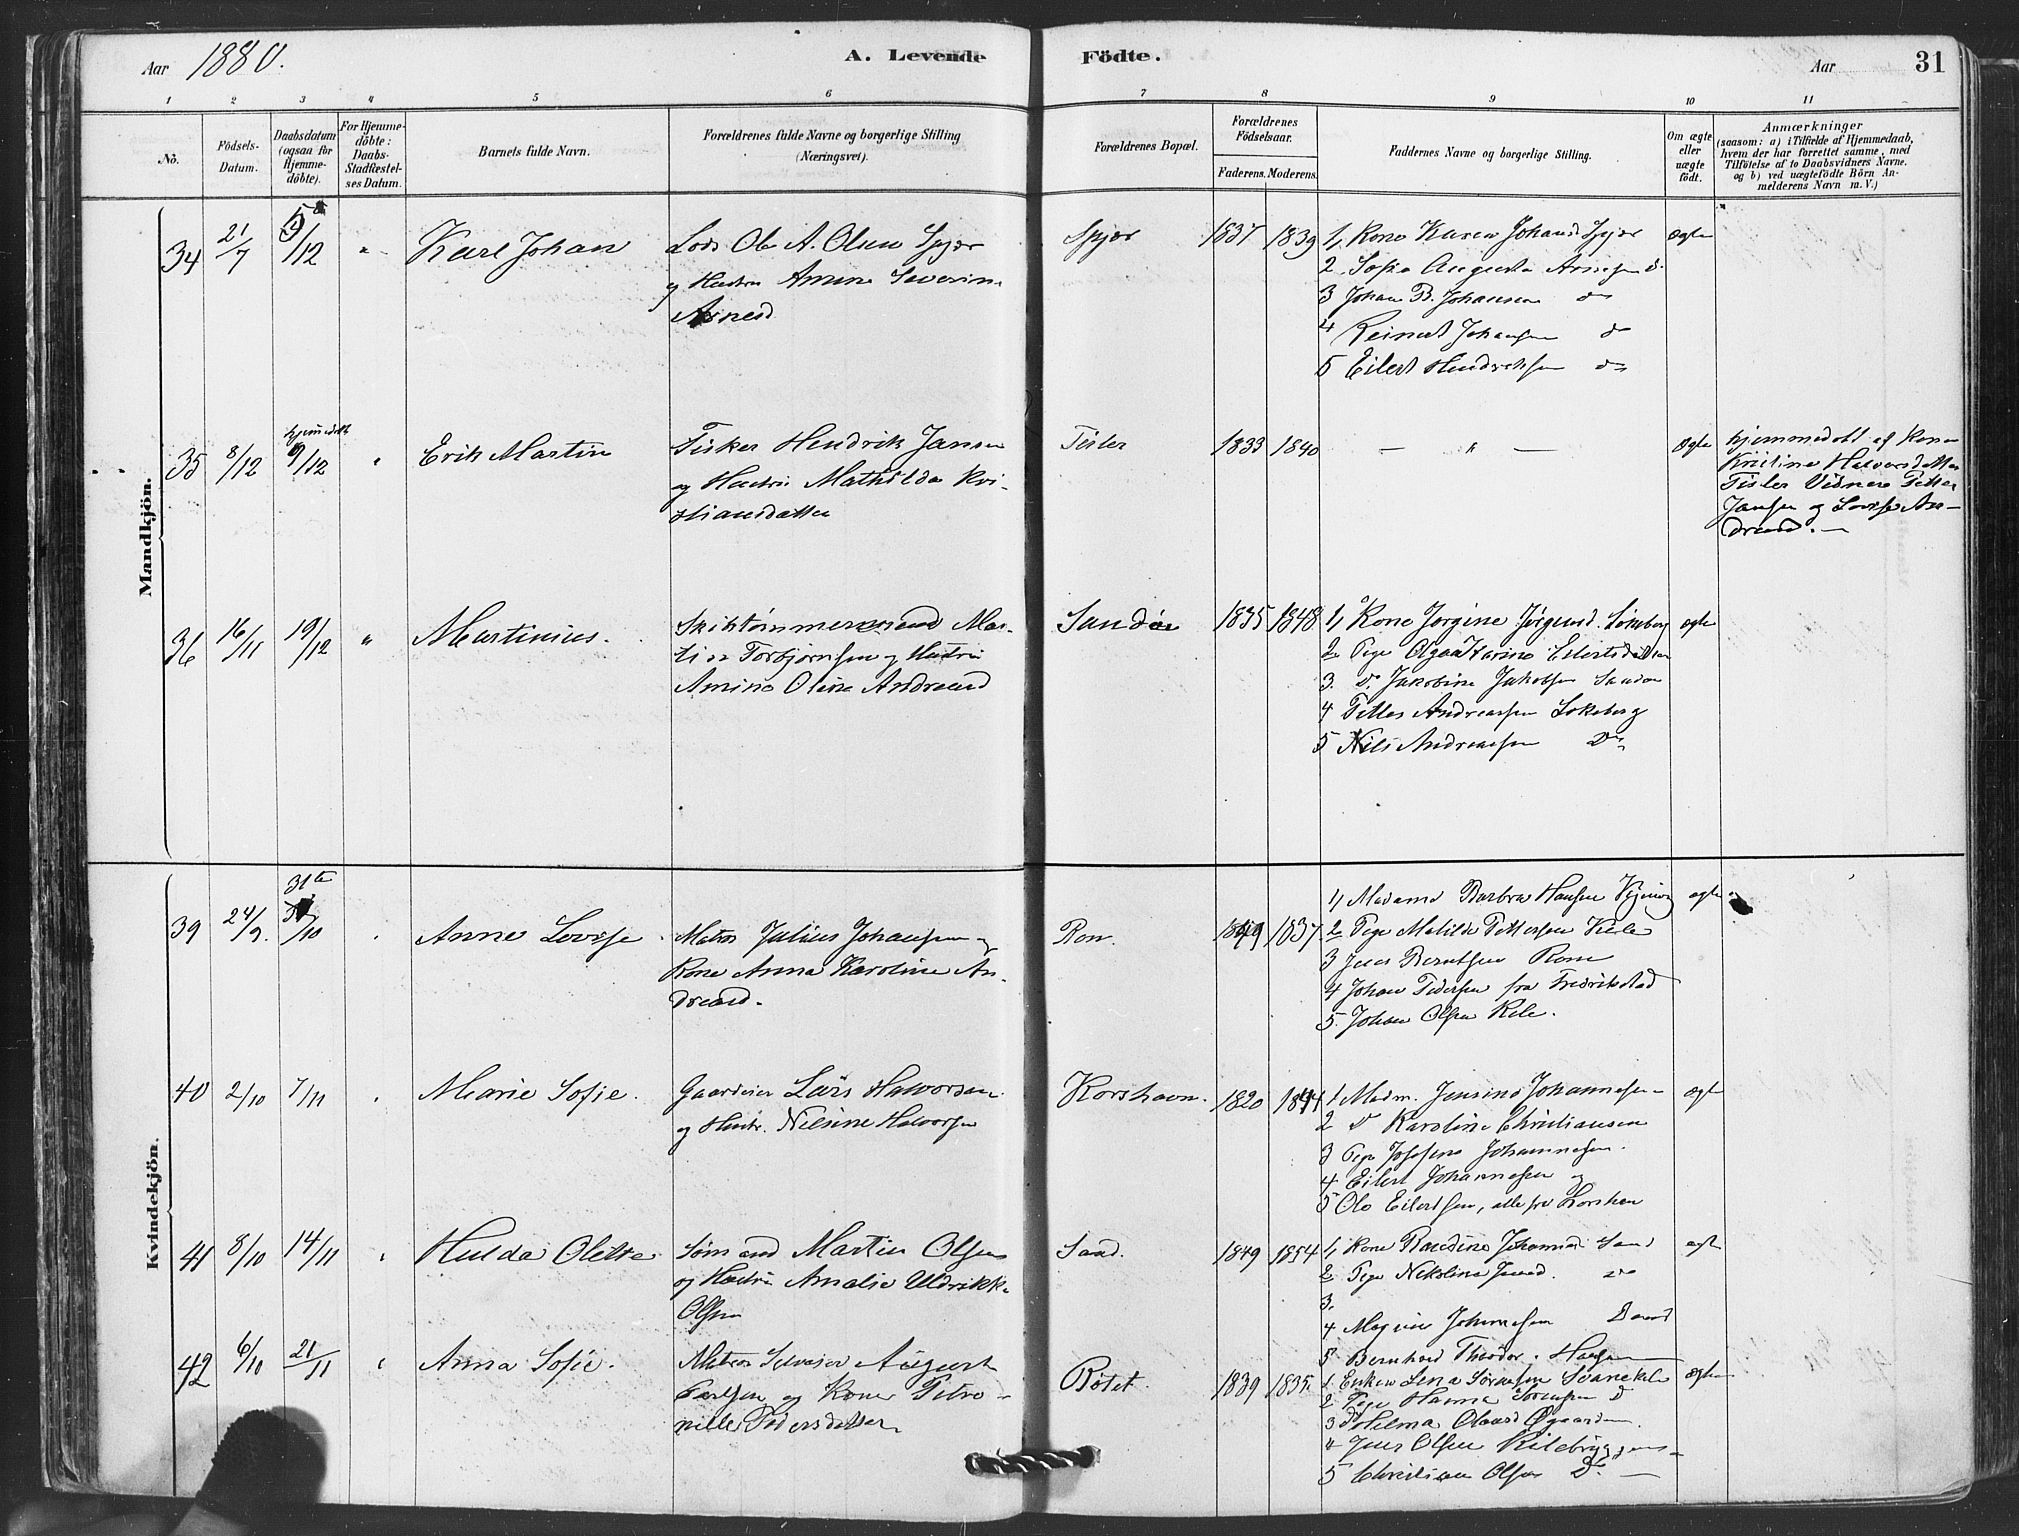 Aar 1880.
A. Levende Födte.
Aar
31
1 2 3 4 5 6 7 8 9 10 11
No.
Födsels-
Datum.
Daabsdatum
(ogsaa for
Hjemme-
döbte).
For Hjemme-
döbte:
Daabs-
Stadfæstel-
ses Datum.
Barnets fulde Navn.
Forældrenes fulde Navne og borgerlige Stilling
(Næringsvei).
Forældrenes Bopæl.
Forældrenes
Födselsaar.
Faderens. Moderens.
Faddernes Navne og borgerlige Stilling.
Om ægte
eller
uægte
födt.
Anmærkninger
(saasom: a) i Tilfælde af Hjemmedaab,
hvem der har forrettet samme, med
Tilföielse af to Daabsvidners Navne.
og b) ved uægtefödte Börn An-
melderens Navn m. V.)
Mandkjön.
34 21/7 5/12 " Karl Johan
Lods Ole A. Olsen Spjær
og Hustru Amine Severine
Arnesd
Spjær 1837 1839
1, Kone Karen Johansd Spjær
2 Sofie Augusta Arnesen d.
3 Johan B. Johansen do
4 Reinert Johansen do
5 Eilert Hendriksen do
ægte
35 8/12 hjemmedøbt 9/12 " Erik Martin
Fisker Hendrik Jansen
og Hustru Mathilda Kri-
stiansdatter
Tisler 1833 1840 — " — ægte
hjemmedøbt af Kone
Kristine Halvorsdatter
Tisler Vidner Petter
Jansen og Lovise An-
dreasd. —
36 16/11 19/12 " Martinius.
Skibstømmermand Mar-
tin Torbjørnsen og Hustru
Amine Oline Andreasd
Sandøe 1835 1848
1, Kone Jørgine Jørgensd. Løkeberg
2 Pige Olga Karine Eilertsdatter
3. d. Jakobine Jakobsen Sandøe
4 Petter Andreassen Løkeberg
5 Nils Andreasen Do
ægte
Kvindekjön.
39 24/9. 31te /10 Anne Lovise
Matros Julius Johansen og
Kone Anna Karoline An-
dreasd.
Røn. 1849 1837.
1, Madame Barbra Hansen
2 Pige Matilde Pettersen Kile
3 Jens Berntsen Røne
4 Johan Pedersen fra Fredrikstad
5. Johan Olsen Kile.
ægte
40 2/10 7/11 Marie Sofie.
Gaardeier Lars Halvorsen
og Hustr. Nilsine Halvorsen
Korshavn. 1820 1844
1 Madm. Jensine Johannesen
2 d Karoline Christiansen
3 Pige Josefine Johannesen.
4 Eilert Johannesen og
5 Ole Eilertsen, alle fra Korshavn
ægte
41 8/10 14/11 Hulda Olette
Sømand Martin Olsen
og Hustru Amalie Uldrikke
Olsen
Sand. 1849 1854
1, Kone Randine Johannesd Sand
2 Pige Nikoline Jensd. do
3.
4 Magnus Johannesen
5 Bernhard Theodor Hansen
ægte
42 6/10 21/11 Anna Sofie.
Matros Selveier August
Carlsen og Kone Petro-
nille Pedersdatter
Røtet. 1839 1835.
1. Enken Lena Sørensen Svanekil
2 Pige Hanna Sørensen d
3 d Helma Olausd Øgaarden
4 Jens Olsen Kilebryggen
5 Christian Olsen Do —
ægte